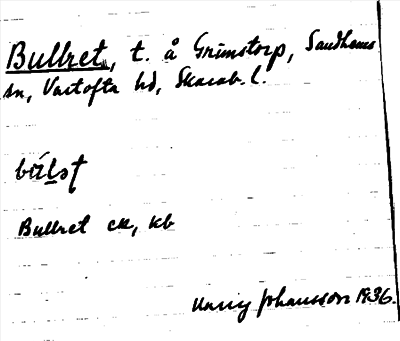 Bullret, t. å Grimstorp, Sandhems
sn, Vartofta hd, Skarab. l.
Bullret ck, kb
Harry Johansson 1936.